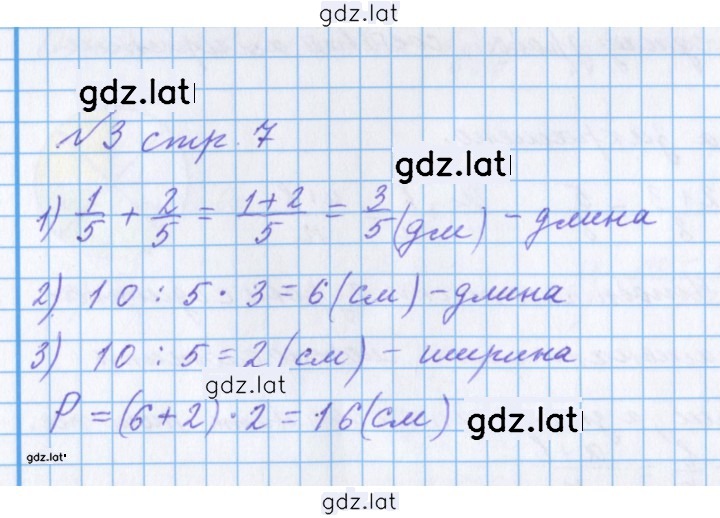 gdz.lat
gdz.lat
№3 стр. 7
gdz.lat
1) 1/5 + 2/5 = 1+2/5 = 3/5 (дм) - длина
2) 10 : 5 · 3 = 6 (см) - длина
3) 10 : 5 = 2 (см) - ширина
gdz.lat
P = (6+2) · 2 = 16 (см)
gdz.lat
gdz.lat
gdz.lat